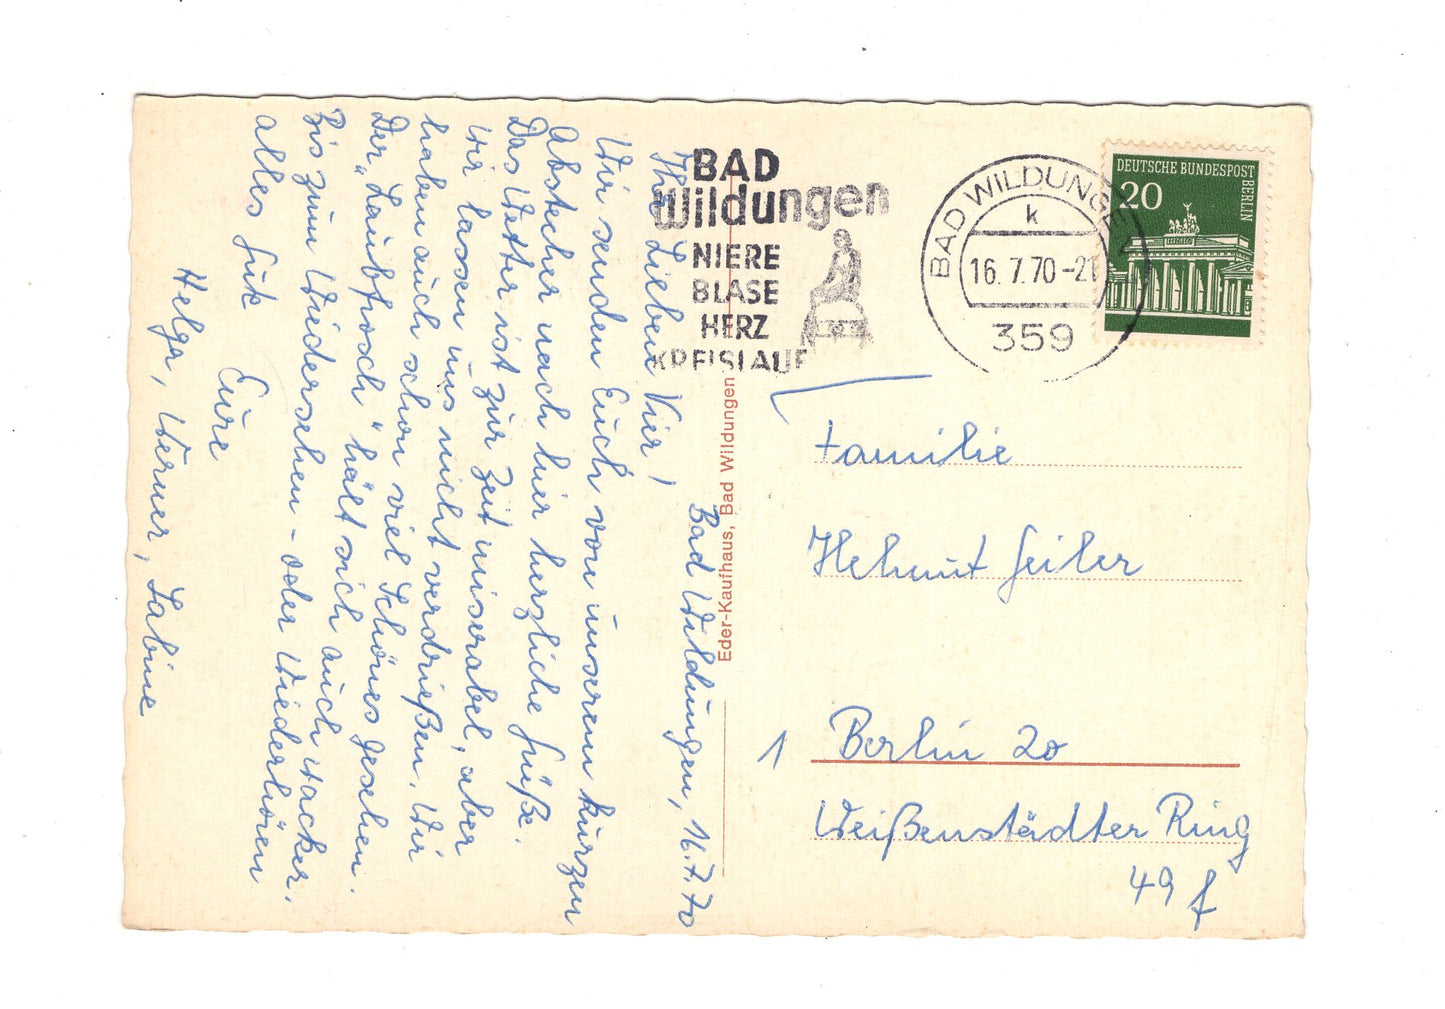 Bad Wildungen, 16.7.70
Ihr Lieben Vier!
Wir senden Euch von unserem kurzen
Abstecher nach hier herzliche Grüße.
Das Wetter ist zur Zeit miserabel, aber
wir lassen uns nicht verdrießen. Wir
haben auch schon viel Schönes gesehen.
Der "Laubfrosch" hält sich auch wacker.
Bis zum Wiedersehen - oder Wiederhören
alles Gute
Eure
Helga, Werner, Sabine
Eder-Kaufhaus, Bad Wildungen
BAD
Wildungen
NIERE
BLASE
HERZ
KREISLAUF
BAD WILDUNGEN
k
16.7.70-21
359
DEUTSCHE BUNDESPOST
BERLIN
20
Familie
Helmut Geiler
1 Berlin 20
Weißenstädter Ring
49 f